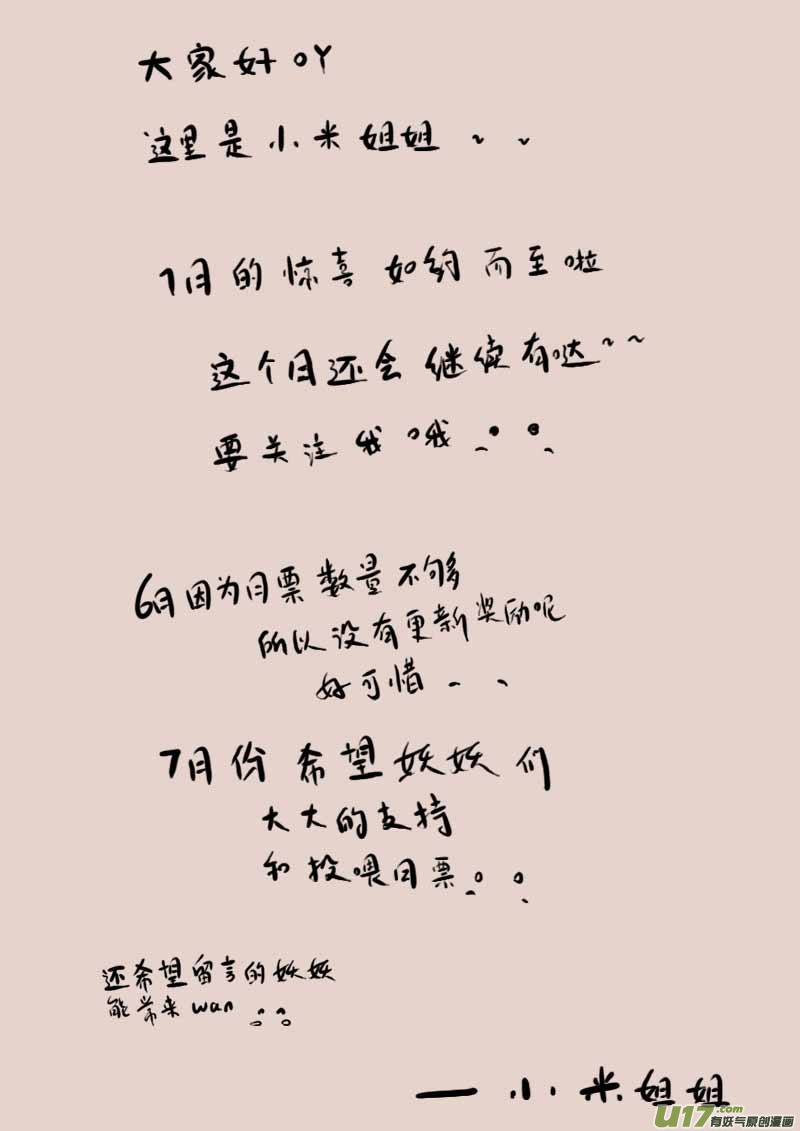 大家好吖
这里是小米姐姐~~
7月的惊喜如约而至啦
这个月还会继续有哒~~
要关注我哦
6月因为月票数量不够
所以没有更新奖励呢
好可惜
7月份希望妖妖们
大大的支持
和投喂月票
还希望留言的妖妖
能常来wan
——小米姐姐
U17.com
有妖气原创漫画